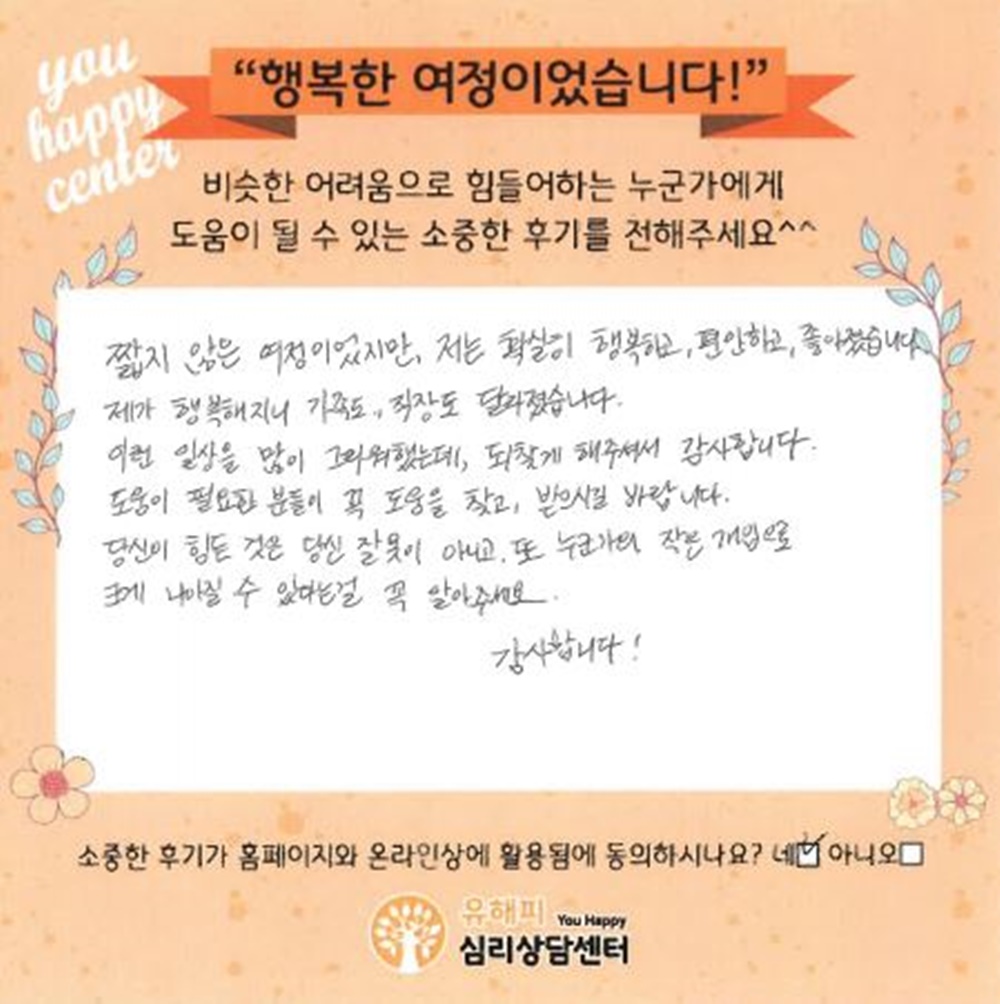 you
happy
center
“행복한 여정이었습니다!”
비슷한 어려움으로 힘들어하는 누군가에게
도움이 될 수 있는 소중한 후기를 전해주세요^^
짧지 않은 여정이었지만, 저는 확실히 행복하고, 편안하고, 좋아졌습니다.
제가 행복해지니 가족도, 직장도 달라졌습니다.
이런 일상을 많이 그리워했는데, 되찾게 해주셔서 감사합니다.
도움이 필요한 분들이 꼭 도움을 찾고, 받으시길 바랍니다.
당신이 힘든 것은 당신 잘못이 아니고, 또 누군가의 작은 개입으로
크게 나아질 수 있다는걸 꼭 알아주세요.
감사합니다!
소중한 후기가 홈페이지와 온라인상에 활용됨에 동의하시나요? 네☑ 아니오☐
유해피 You Happy
심리상담센터